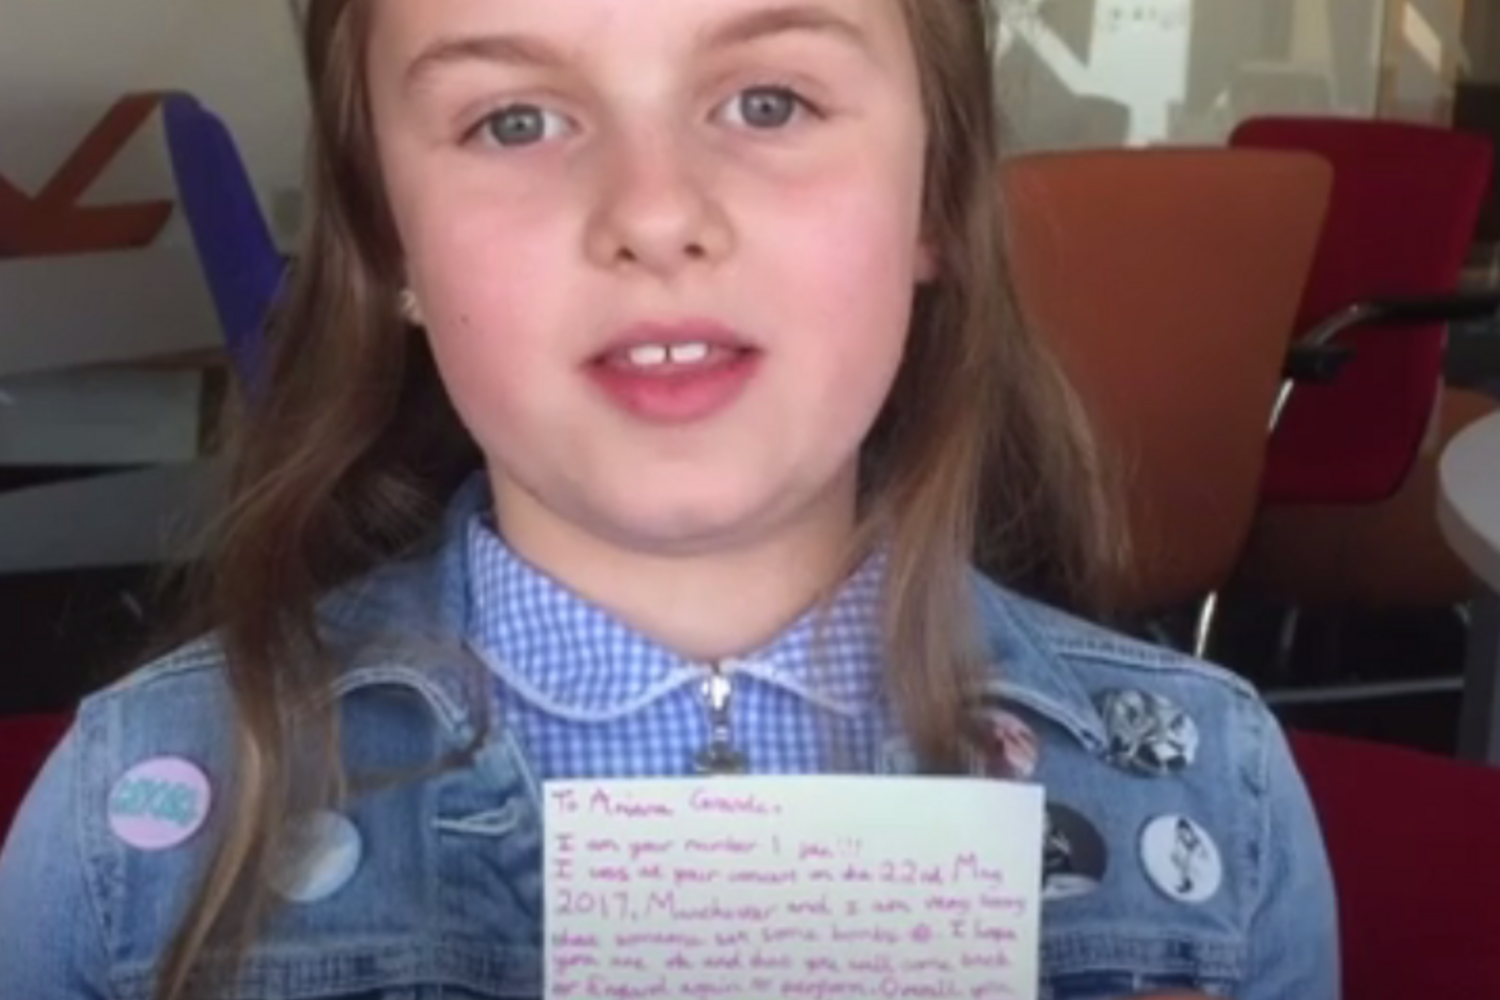 To Ariana Grande.
I am your number 1 fan!!!
I was at your concert on the 22nd May
2017, Manchester and I am very sorry
that someone set some bombs I hope
you are ok and that you will come back
to England again to perform.